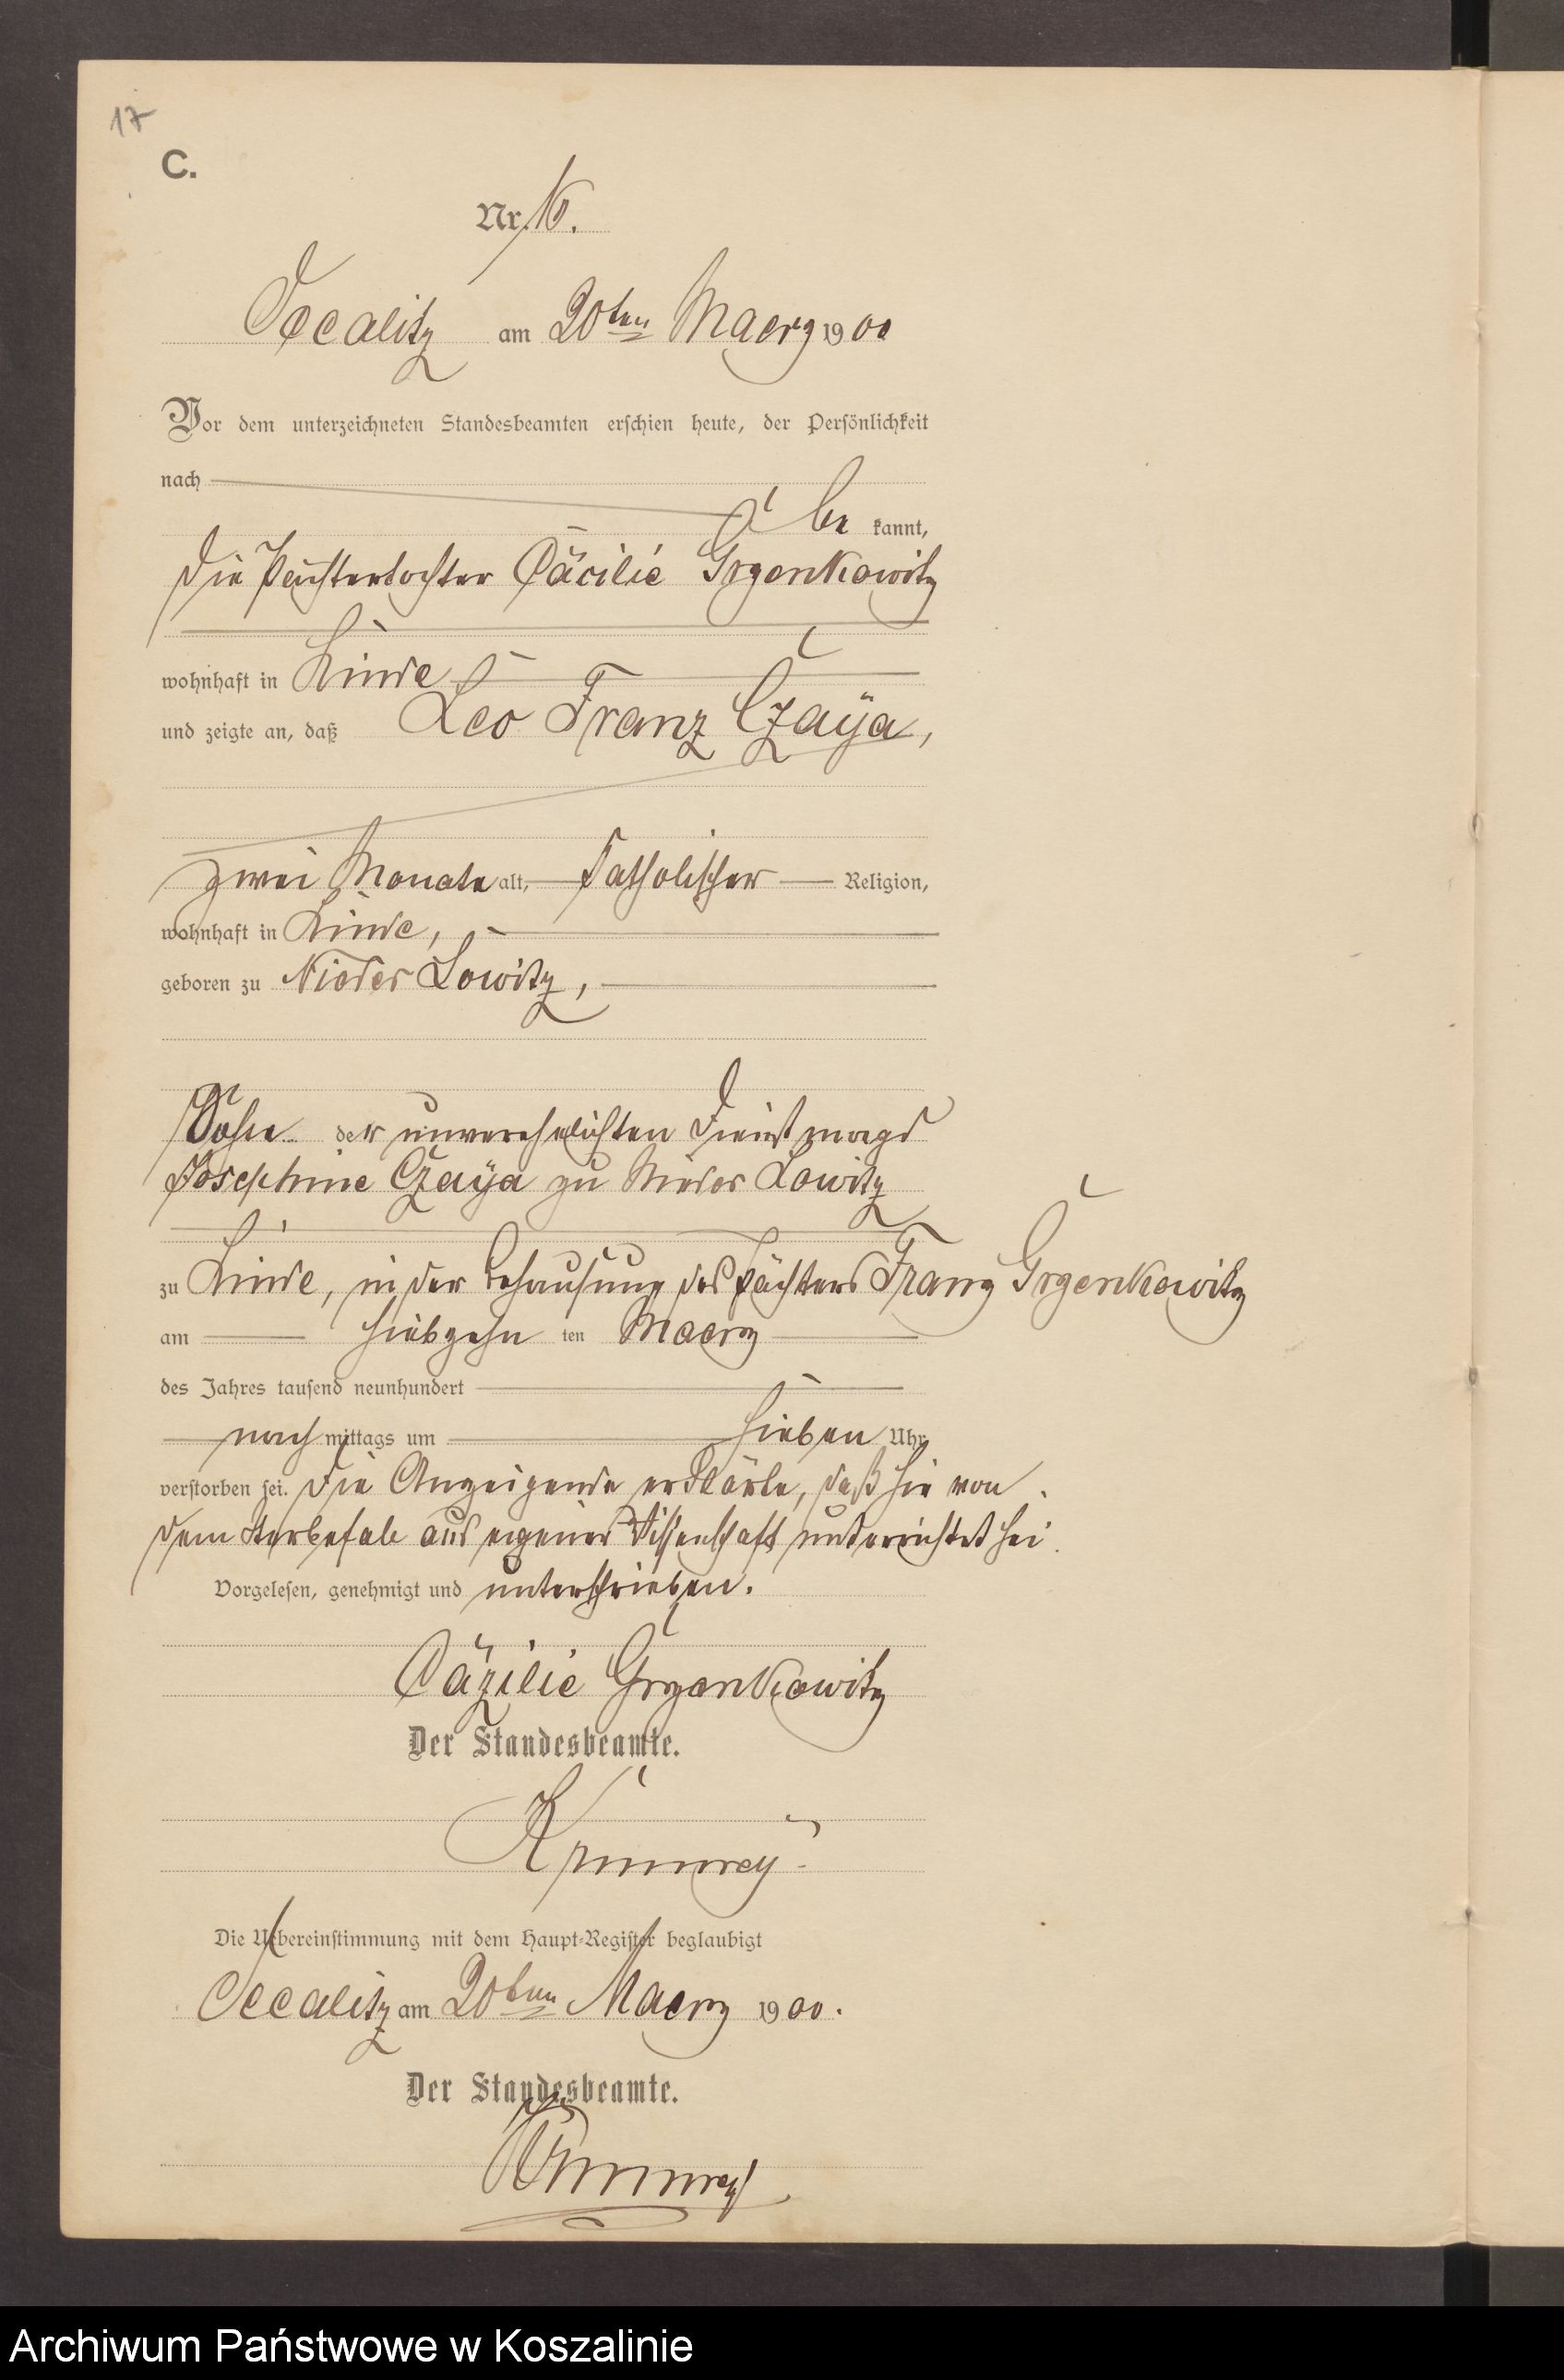 17
C.
Nr. 16.
Occalitz am 20ten Maerz 1900
Vor dem unterzeichneten Standesbeamten erschien heute, der Persönlichkeit
nach
be kannt,
die Pächtertochter Cäcilie Grzenkowitz
wohnhaft in Linde
und zeigte an, daß Leo Franz Czaÿa,
zwei Monate alt, katholischer Religion,
wohnhaft in Linde,
geboren zu Nieder Lowitz,
Sohn der unverehelichten Dienstmagd
Josephine Czaÿa zu Nieder Lowitz
zu Linde, in der Behausung des Pächters Franz Grzenkowitz
am siebzehn ten Maerz
des Jahres tausend neunhundert
nach mittags um sieben Uhr
verstorben sei. Die Anzeigende erklärte, daß sie von
dem Sterbefale aus eigener Wissenschaft unterrichtet sei.
Vorgelesen, genehmigt und unterschrieben.
Cäzilie Grzenkowitz
Der Standesbeamte.
Die Uebereinstimmung mit dem Haupt-Register beglaubigt
Occalitz am 20ten Maerz 1900.
Der Standesbeamte.
Archiwum Państwowe w Koszalinie